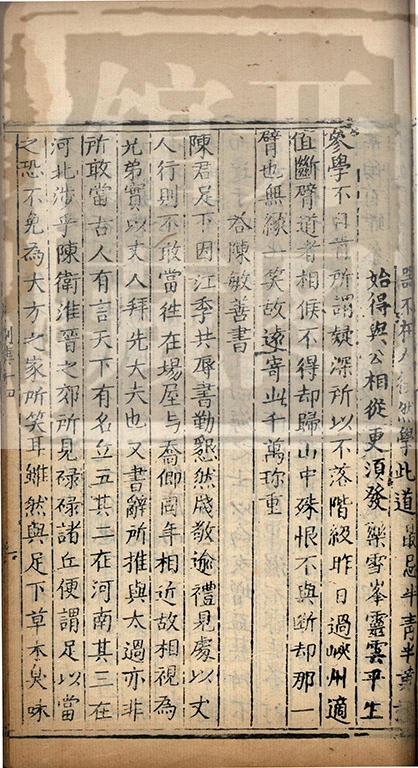 器不
學此道最忌半青半黃
始得與公相從更須發藥雪峯靈雲平生
參學不自肯所謂疑深所以不落階級昨日過峽州適
值斷臂道者相候不得却歸山中殊恨不與斷却那一
臂也無緣一笑故遠寄此千萬珍重
答陳敏善書
陳君足下因江季共辱書勤懇然牋敬逾禮見處以丈
人行則不敢當往在場屋与喬卿同年相近故相視為
兄弟實以丈人拜先大夫也又書辭所推與太過亦非
所敢當古人有言天下有名丘五其二在河南其三在
河北涉乎陳衛淮晉之郊所見碌碌諸丘便謂足以當
之恐不免為大方之家所笑耳雖然與足下草木臭味